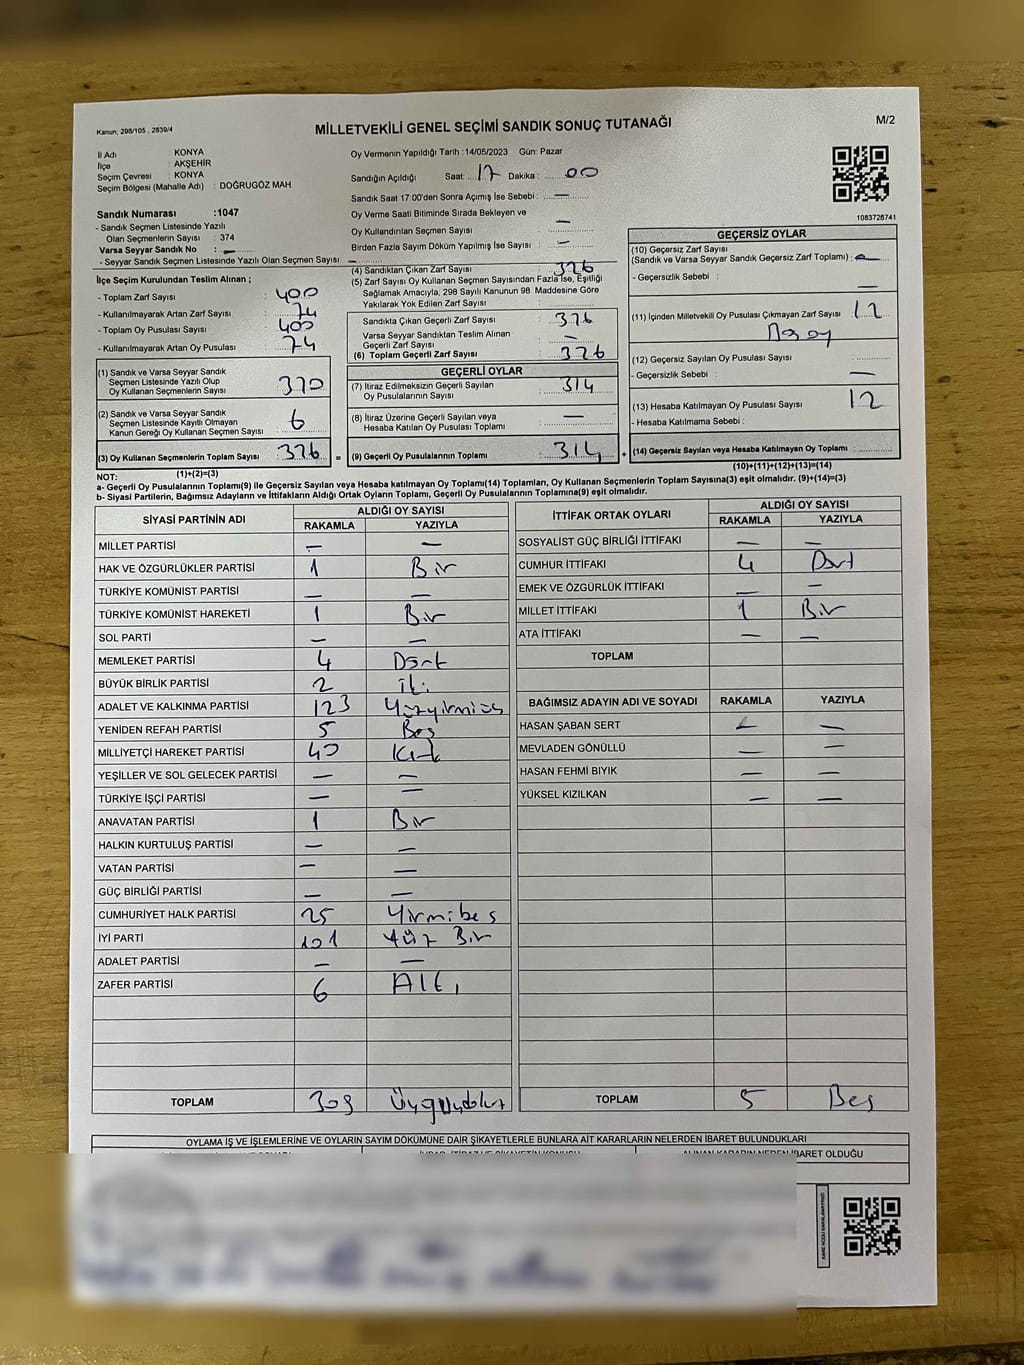 Kanun, 298/105 , 2839/4
MİLLETVEKİLİ GENEL SEÇİMİ SANDIK SONUÇ TUTANAĞI
M/2
İl Adı : KONYA
İlçe : AKŞEHİR
Seçim Çevresi : KONYA
Seçim Bölgesi (Mahalle Adı) : DOĞRUGÖZ MAH.
Sandık Numarası :1047
- Sandık Seçmen Listesinde Yazılı
Olan Seçmenlerin Sayısı : 374
Varsa Seyyar Sandık No : —
- Seyyar Sandık Seçmen Listesinde Yazılı Olan Seçmen Sayısı: —
Oy Vermenin Yapıldığı Tarih :14/05/2023 Gün: Pazar
Sandığın Açıldığı Saat: 17 Dakika : 00
Sandık Saat 17.00'den Sonra Açımış İse Sebebi : —
Oy Verme Saati Bitiminde Sırada Bekleyen ve
Oy Kullandırılan Seçmen Sayısı —
Birden Fazla Sayım Döküm Yapılmış İse Sayısı : —
1083726741
İlçe Seçim Kurulundan Teslim Alınan ;
- Toplam Zarf Sayısı : 400
- Kullanılmayarak Artan Zarf Sayısı : 74
- Toplam Oy Pusulası Sayısı : 400
- Kullanılmayarak Artan Oy Pusulası : 74
(1) Sandık ve Varsa Seyyar Sandık
Seçmen Listesinde Yazılı Olup
Oy Kullanan Seçmenlerin Sayısı : 370
(2) Sandık ve Varsa Seyyar Sandık
Seçmen Listesinde Kayıtlı Olmayan
Kanun Gereği Oy Kullanan Seçmen Sayısı : 6
(3) Oy Kullanan Seçmenlerin Toplam Sayısı : 376 =
(1)+(2)=(3)
(4) Sandıktan Çıkan Zarf Sayısı : 326
(5) Zarf Sayısı Oy Kullanan Seçmen Sayısından Fazla İse, Eşitliği
Sağlamak Amacıyla, 298 Sayılı Kanunun 98. Maddesine Göre
Yakılarak Yok Edilen Zarf Sayısı :
Sandıkta Çıkan Geçerli Zarf Sayısı : 326
Varsa Seyyar Sandıktan Teslim Alınan
Geçerli Zarf Sayısı : —
(6) Toplam Geçerli Zarf Sayısı : 326
GEÇERLİ OYLAR
(7) İtiraz Edilmeksizin Geçerli Sayılan
Oy Pusulalarının Sayısı : 314
(8) İtiraz Üzerine Geçerli Sayılan veya
Hesaba Katılan Oy Pusulası Toplamı : —
(9) Geçerli Oy Pusulalarının Toplamı : 314 +
GEÇERSİZ OYLAR
(10) Geçersiz Zarf Sayısı
(Sandık ve Varsa Seyyar Sandık Geçersiz Zarf Toplamı) : —
- Geçersizlik Sebebi : —
(11) İçinden Milletvekili Oy Pusulası Çıkmayan Zarf Sayısı : 12
(12) Geçersiz Sayılan Oy Pusulası Sayısı :
- Geçersizlik Sebebi : —
(13) Hesaba Katılmayan Oy Pusulası Sayısı : 12
- Hesaba Katılmama Sebebi :
(14) Geçersiz Sayılan veya Hesaba Katılmayan Oy Toplamı :
(10)+(11)+(12)+(13)=(14)
NOT:
a- Geçerli Oy Pusulalarının Toplamı(9) ile Geçersiz Sayılan veya Hesaba katılmayan Oy Toplamı(14) Toplamları, Oy Kullanan Seçmenlerin Toplam Sayısına(3) eşit olmalıdır. (9)+(14)=(3)
b- Siyasi Partilerin, Bağımsız Adayların ve İttifakların Aldığı Ortak Oyların Toplamı, Geçerli Oy Pusulalarının Toplamına(9) eşit olmalıdır.
SİYASİ PARTİNİN ADI ALDIĞI OY SAYISI
RAKAMLA YAZIYLA
MİLLET PARTİSİ — —
HAK VE ÖZGÜRLÜKLER PARTİSİ 1 Bir
TÜRKİYE KOMÜNİST PARTİSİ — —
TÜRKİYE KOMÜNİST HAREKETİ 1 Bir
SOL PARTİ — —
MEMLEKET PARTİSİ 4 Dört
BÜYÜK BİRLİK PARTİSİ 2 İki
ADALET VE KALKINMA PARTİSİ 123 Yüzyirmiüç
YENİDEN REFAH PARTİSİ 5 Beş
MİLLİYETÇİ HAREKET PARTİSİ 40 Kırk
YEŞİLLER VE SOL GELECEK PARTİSİ — —
TÜRKİYE İŞÇİ PARTİSİ — —
ANAVATAN PARTİSİ 1 Bir
HALKIN KURTULUŞ PARTİSİ — —
VATAN PARTİSİ — —
GÜÇ BİRLİĞİ PARTİSİ — —
CUMHURİYET HALK PARTİSİ 25 Yirmibeş
İYİ PARTİ 101 Yüz Bir
ADALET PARTİSİ — —
ZAFER PARTİSİ 6 Altı
TOPLAM 309 Üçyüzdokuz
İTTİFAK ORTAK OYLARI ALDIĞI OY SAYISI
RAKAMLA YAZIYLA
SOSYALİST GÜÇ BİRLİĞİ İTTİFAKI — —
CUMHUR İTTİFAKI 4 Dört
EMEK VE ÖZGÜRLÜK İTTİFAKI — —
MİLLET İTTİFAKI 1 Bir
ATA İTTİFAKI — —
TOPLAM
BAĞIMSIZ ADAYIN ADI VE SOYADI RAKAMLA YAZIYLA
HASAN ŞABAN SERT — —
MEVLADEN GÖNÜLLÜ — —
HASAN FEHMİ BIYIK — —
YÜKSEL KIZILKAN — —
TOPLAM 5 Beş
OYLAMA İŞ VE İŞLEMLERİNE VE OYLARIN SAYIM DÖKÜMÜNE DAİR ŞİKAYETLERLE BUNLARA AİT KARARLARIN NELERDEN İBARET BULUNDUKLARI
ALINAN KARARIN NEDEN İBARET OLDUĞU